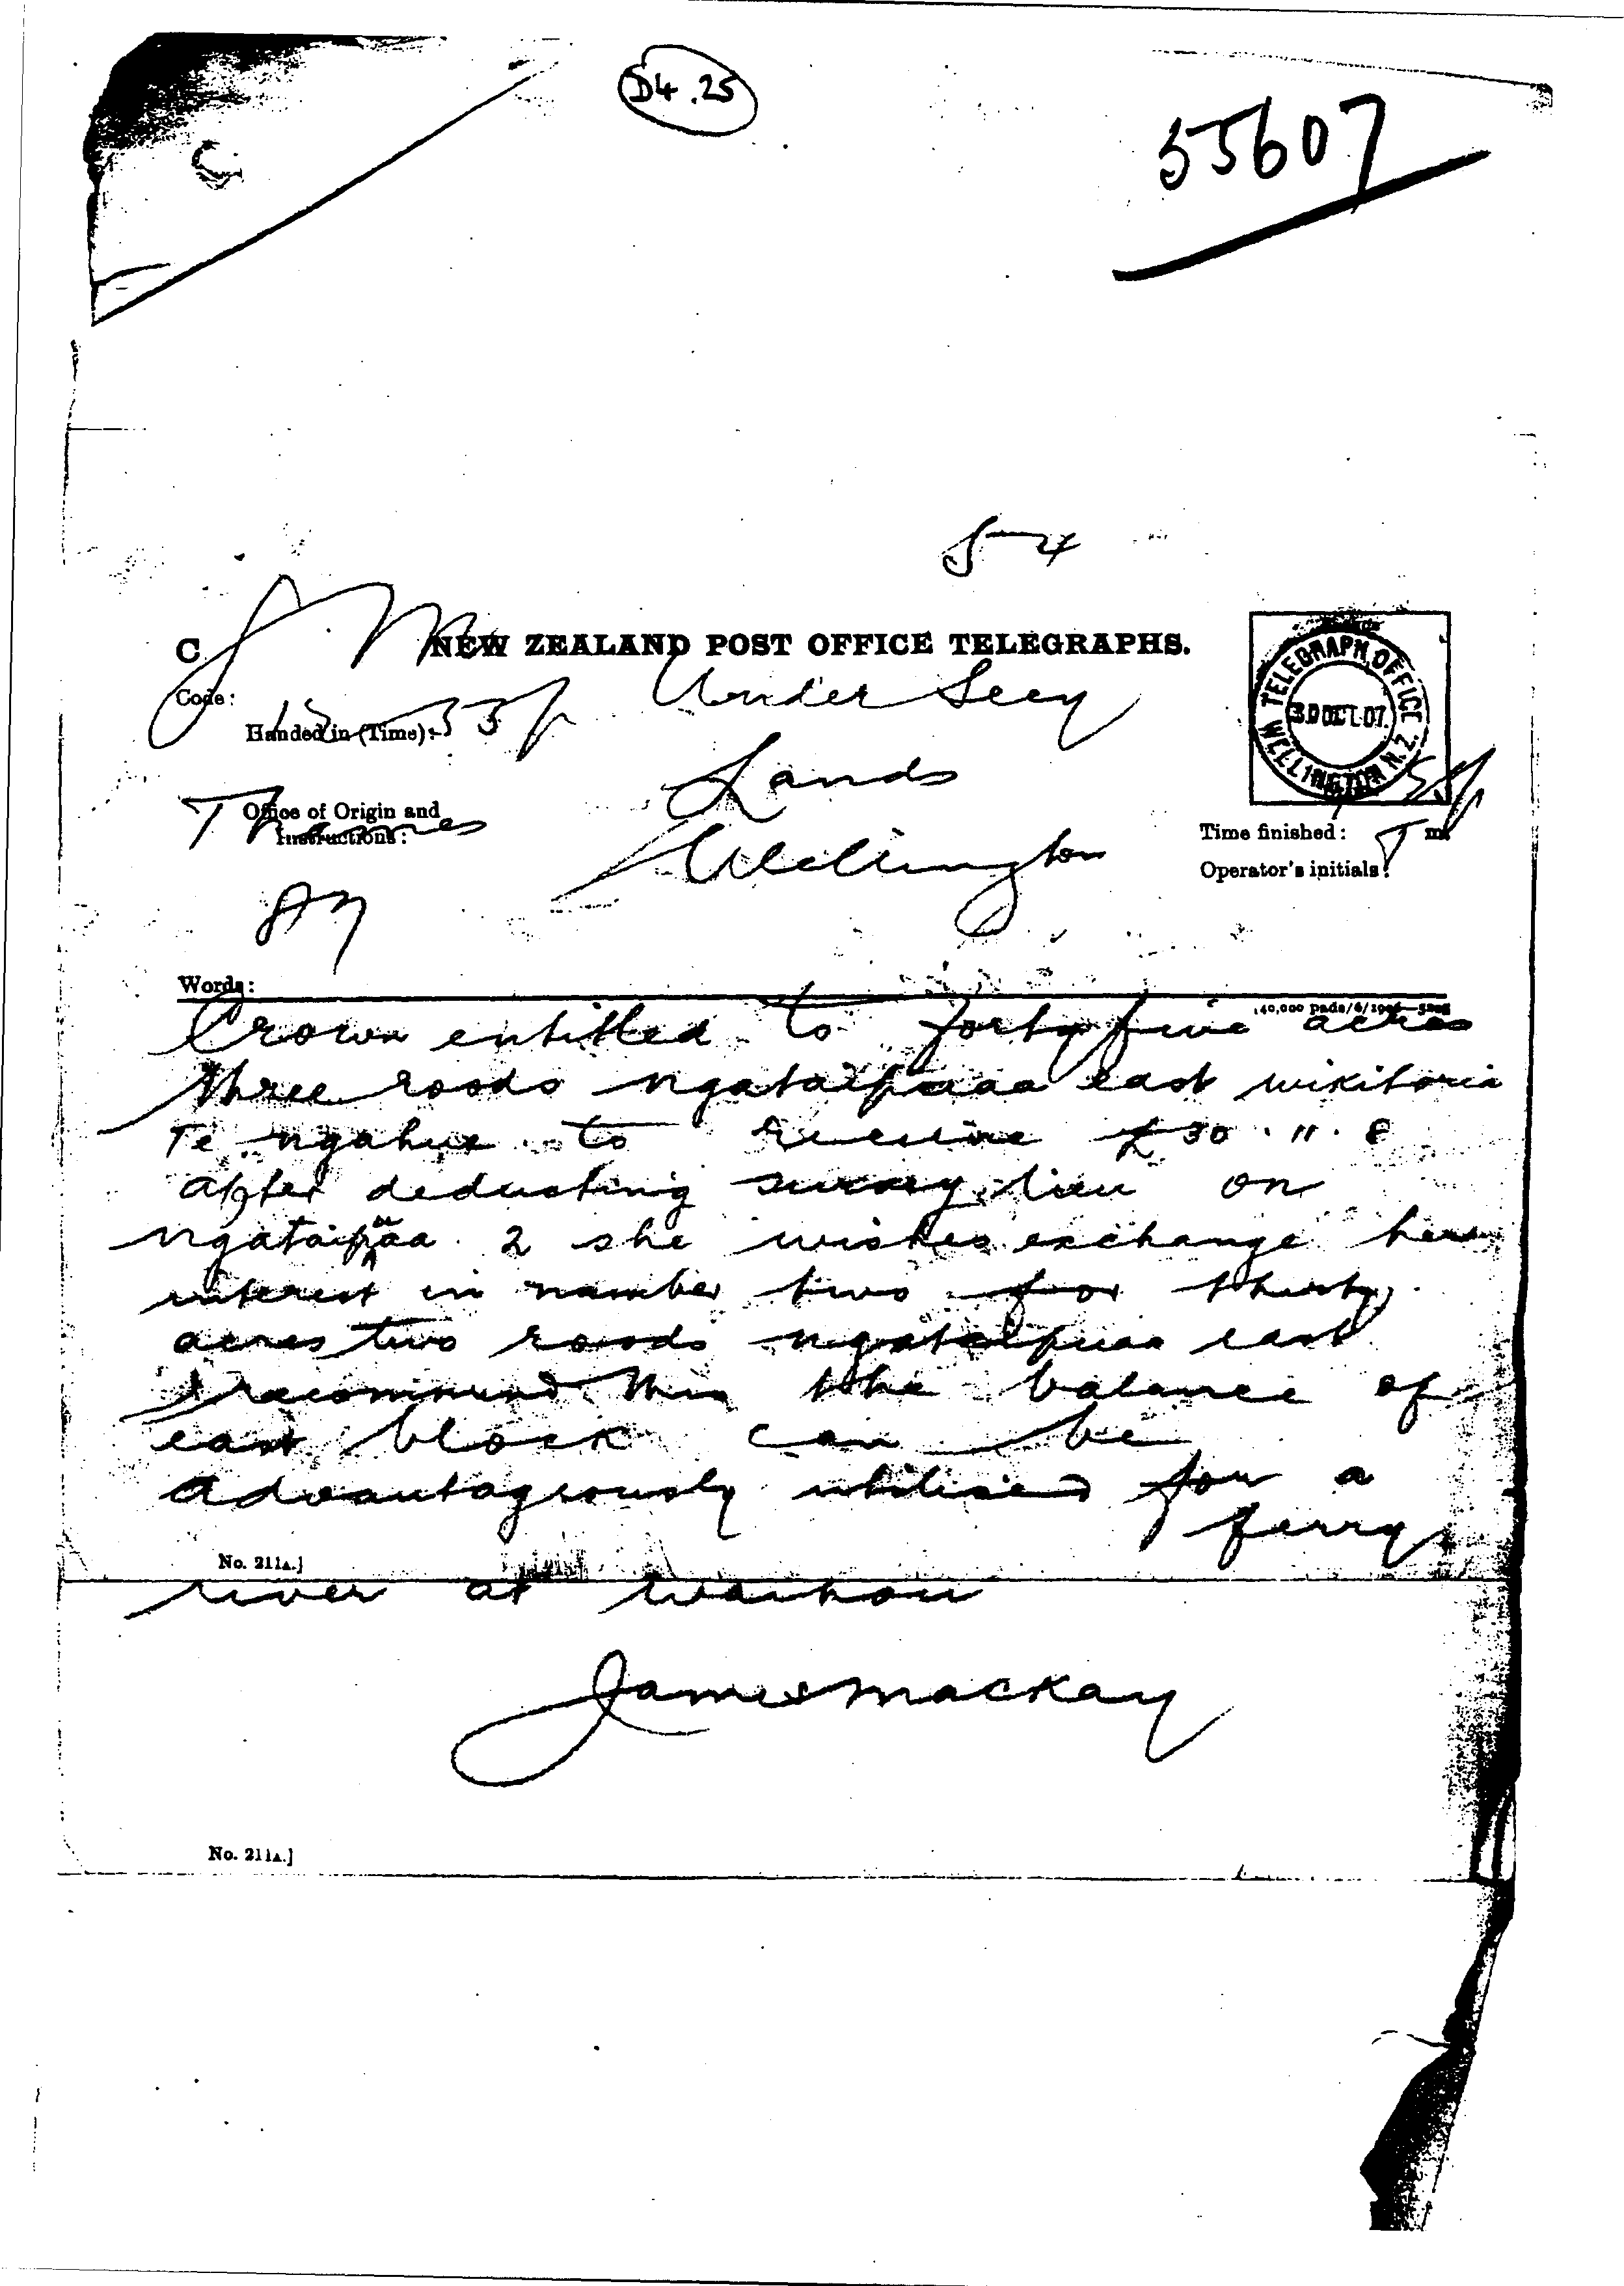 D4.25
55607
54
C
NEW ZEALAND POST OFFICE TELEGRAPHS.
Code:
Handed in (Time):
Under Secy
TELEGRAPH OFFICE
30 OCT. 07.
WELLINGTON N.Z.
Lands
Office of Origin and
Instructions:
Thames
Wellington
Time finished:
Operator's initials:
87
Words:
Crown entitled to forty five acres
three roods ngataipuaa east wikitoria
Te ngahue to receive £30.11.8
after deducting survey lien on
ngataipuaa 2 she wishes exchange her
interest in number two for thirty
acres two roods ngataipuaa east
I recommend this the balance of
east block can be
advantageously utilised for a
ferry
No. 211A.]
river at waihou
James mackay
No. 211A.]